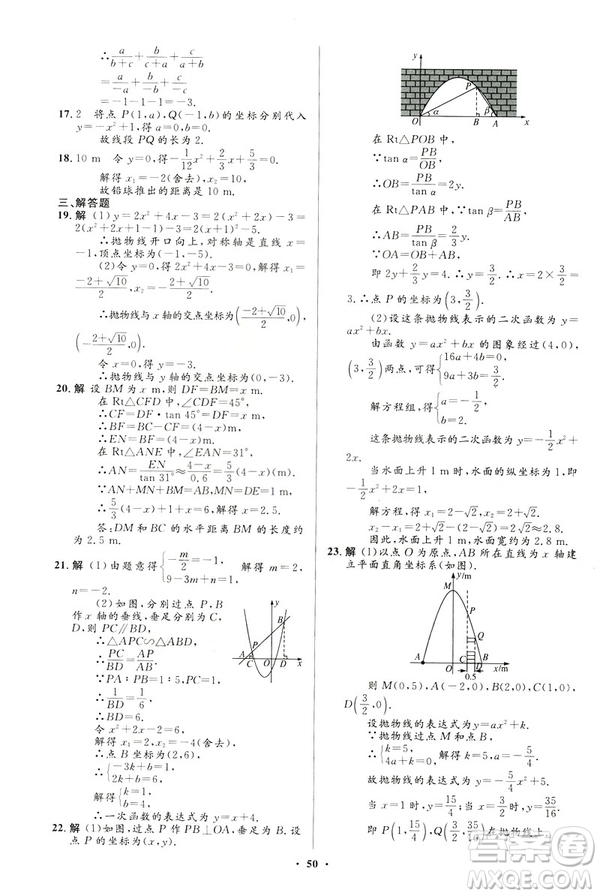 ∴a/(b+c)+b/(a+c)+c/(a+b)
=a/(-a)+b/(-b)+c/(-c)
=-1-1-1=-3.
17. 2 将点 P(1,a),Q(-1,b)的坐标分别代入
y=-x²+1,得 a=0,b=0.
故线段 PQ 的长为 2.
18. 10 m 令 y=0,得 -1/12 x²+2/3 x+5/3=0.
解得 x₁=-2(舍去),x₂=10.
故铅球推出的距离是 10 m.
三、解答题
19. 解 (1)y=2x²+4x-3=2(x²+2x)-3=
2(x²+2x+1-1)-3=2(x+1)²-5.
∴抛物线开口向上,对称轴是直线 x=
-1,顶点坐标为(-1,-5).
(2)令 y=0,得 2x²+4x-3=0.解得 x₁=
-(2+√10)/2,x₂=(-2+√10)/2.
∴抛物线与 x 轴的交点坐标为((-2+√10)/2,0),
(-(2+√10)/2,0).
令 x=0,得 y=-3.
∴抛物线与 y 轴的交点坐标为(0,-3).
20. 解 设 BM 为 x m,则 DF=BM=x m.
在 Rt△CFD 中,∠DCF=45°,
∴CF=DF·tan 45°=x(m).
∴BF=BC-CF=(4-x)(m).
∴EN=BF=(4-x)(m).
在 Rt△EAN 中,∠EAN=31°,
∴AN=EN/tan 31°≈(4-x)/0.6=5/3(4-x)(m).
∵AN+MN+BM=AB,
∴5/3(4-x)+x+x=5.解得 x=5.
答:DM 和 BC 的水平距离 BM 的长度约
为 2.5 m.
21. 解 (1)由题意得{-m/2=-1, 9-3m+n=1. 解得{m=2, n=-2.
(2)如图,分别过点 P,B
作 x 轴的垂线,垂足为 C,
D,则 PC∥BD.
∴△APC∽△ABD.
∴PC/BD=AP/AB.
∵PA/PB=1/5,
∴1/BD=1/6.
∴BD=6.
令 x²+2x-2=6.
解得 x₁=2,x₂=-4(舍去).
∴点 B 的坐标为(2,6).
∴{-3k+b=1, 2k+b=6.
解得{k=1, b=4.
∴一次函数的表达式为 y=x+4.
22. 解 (1)如图,过点 P 作 PB⊥OA,垂足为 B.设
点 P 的坐标为(x,y).
y
P
O
α
β
B
A
x
在 Rt△POB 中,
∵tan α=PB/OB,
∴OB=PB/tan α=2y.
在 Rt△PAB 中,
∵tan β=PB/AB,
∴AB=PB/tan β=2/3 y.
∵OA=OB+AB,
即 2y+2/3 y=4.∴y=3/2.∴x=2×3/2=
3.∴点 P 的坐标为(3,3/2).
(2)设这条抛物线表示的二次函数为 y=
ax²+bx.
由函数 y=ax²+bx 的图象经过(4,0),
(3,3/2)两点,可得{16a+4b=0, 9a+3b=3/2.
解方程组,得{a=-1/2, b=2.
这条抛物线表示的二次函数为 y=-1/2 x²
+2x.
当水面上升 1 m 时,水面的纵坐标为 1,
即 -1/2 x²+2x=1.
解方程,得 x₁=2-√2,x₂=2+√2.
x₂-x₁=2+√2-(2-√2)=2√2≈2.8.
因此,水面上升 1 m,水面宽约为 2.8 m.
23. 解 (1)以点 O 为原点、AD 所在直线为 x 轴建
立平面直角坐标系(如图).
y/m
M
P
Q
A
O
B
D
x/m
0.5
则 M(0,5),B(2,0),C(1,0),
D(3/2,0).
设抛物线的表达式为 y=ax²+k.
∴{k=5, 4a+k=0. 解得{k=5, a=-5/4.
故抛物线的表达式为 y=-5/4 x²+5.
当 x=1 时,y=15/4;当 x=3/2 时,y=35/16.
即 P(1,15/4),Q(3/2,35/16)在抛物线上.
• 50 •
答案圈
MXQE.COM